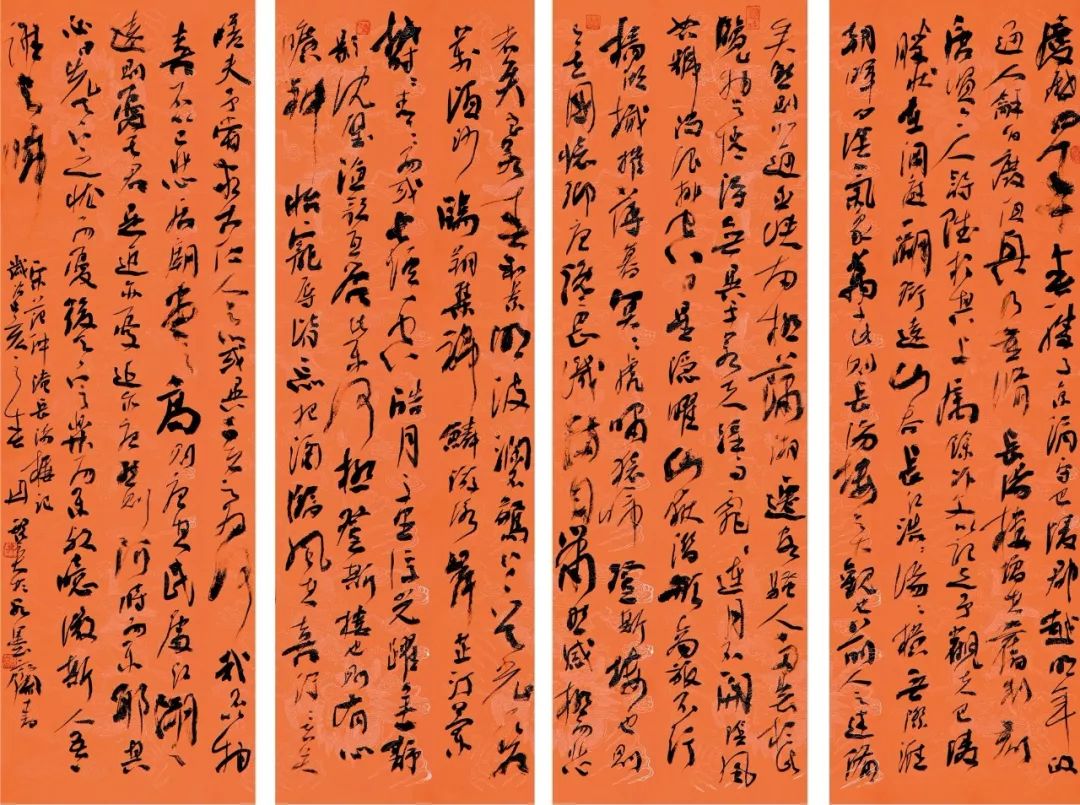 慶曆四年春滕子京謫守巴陵郡越明年政
通人和百廢俱興乃重修岳陽樓增其舊制刻
唐賢今人詩賦於其上屬余作文以記之予觀夫巴陵
勝狀在洞庭一湖銜遠山吞長江浩浩湯湯橫無際涯
朝暉夕陰氣象萬千此則岳陽樓之大觀也前人之述備
矣然則北通巫峽南極瀟湘遷客騷人多會於此
覽物之情得無異乎若夫淫雨霏霏連月不開陰風
怒號濁浪排空日星隱曜山岳潛形商旅不行
檣傾楫摧薄暮冥冥虎嘯猿啼登斯樓也則
有去國懷鄉憂讒畏譏滿目蕭然感極而悲
者矣至若春和景明波瀾不驚上下天光一碧
萬頃沙鷗翔集錦鱗游泳岸芷汀蘭
鬱鬱青青而或長煙一空皓月千里浮光躍金靜
影沉璧漁歌互答此樂何極登斯樓也則有心
曠神怡寵辱皆忘把酒臨風其喜洋洋者矣
嗟夫予嘗求古仁人之心或異二者之為何哉不以物
喜不以己悲居廟堂之高則憂其民處江湖之
遠則憂其君是進亦憂退亦憂然則何時而樂耶其
必曰先天下之憂而憂後天下之樂而樂歟噫微斯人吾
誰與歸
宋范仲淹岳陽樓記